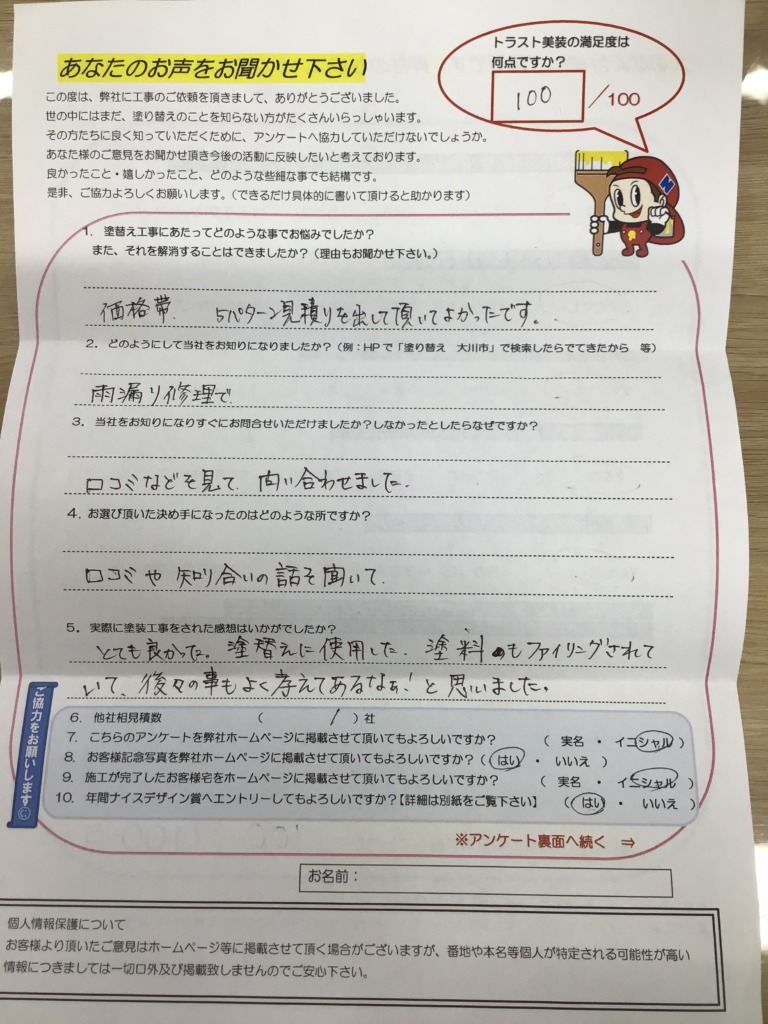 あなたのお声をお聞かせ下さい
トラスト美装の満足度は
何点ですか？
100 ／100
この度は、弊社に工事のご依頼を頂きまして、ありがとうございました。
世の中にはまだ、塗り替えのことを知らない方がたくさんいらっしゃいます。
その方たちに良く知っていただくために、アンケートへ協力していただけないでしょうか。
あなた様のご意見をお聞かせ頂き今後の活動に反映したいと考えております。
良かったこと・嬉しかったこと、どのような些細な事でも結構です。
是非、ご協力よろしくお願いします。（できるだけ具体的に書いて頂けると助かります）
1. 塗替え工事にあたってどのような事でお悩みでしたか？
また、それを解消することはできましたか？（理由もお聞かせ下さい。）
価格帯. 5パターン見積りを出して頂いてよかったです。
2. どのようにして当社をお知りになりましたか？（例：HPで「塗り替え 大川市」で検索したらでてきたから 等）
雨漏り修理で
3. 当社をお知りになりすぐにお問合せいただけましたか？しなかったとしたらなぜですか？
口コミなどを見て、問い合わせました.
4. お選び頂いた決め手になったのはどのような所ですか？
口コミや知り合いの話を聞いて.
5. 実際に塗装工事をされた感想はいかがでしたか？
とても良かった。塗替えに使用した. 塗料もファイリングされて
いて、後々の事もよく考えてあるなぁ！と思いました。
ご協力をお願いします☺
6. 他社相見積数 （ 1 ）社
7. こちらのアンケートを弊社ホームページに掲載させて頂いてもよろしいですか？ （ 実名 ・ イニシャル ）
8. お客様記念写真を弊社ホームページに掲載させて頂いてもよろしいですか？（ はい ・ いいえ ）
9. 施工が完了したお客様宅をホームページに掲載させて頂いてもよろしいですか？ （ 実名 ・ イニシャル ）
10. 年間ナイスデザイン賞へエントリーしてもよろしいですか？【詳細は別紙をご覧下さい】 （ はい ・ いいえ ）
※アンケート裏面へ続く ⇒
お名前：
個人情報保護について
お客様より頂いたご意見はホームページ等に掲載させて頂く場合がございますが、番地や本名等個人が特定される可能性が高い
情報につきましては一切口外及び掲載致しませんのでご安心下さい。